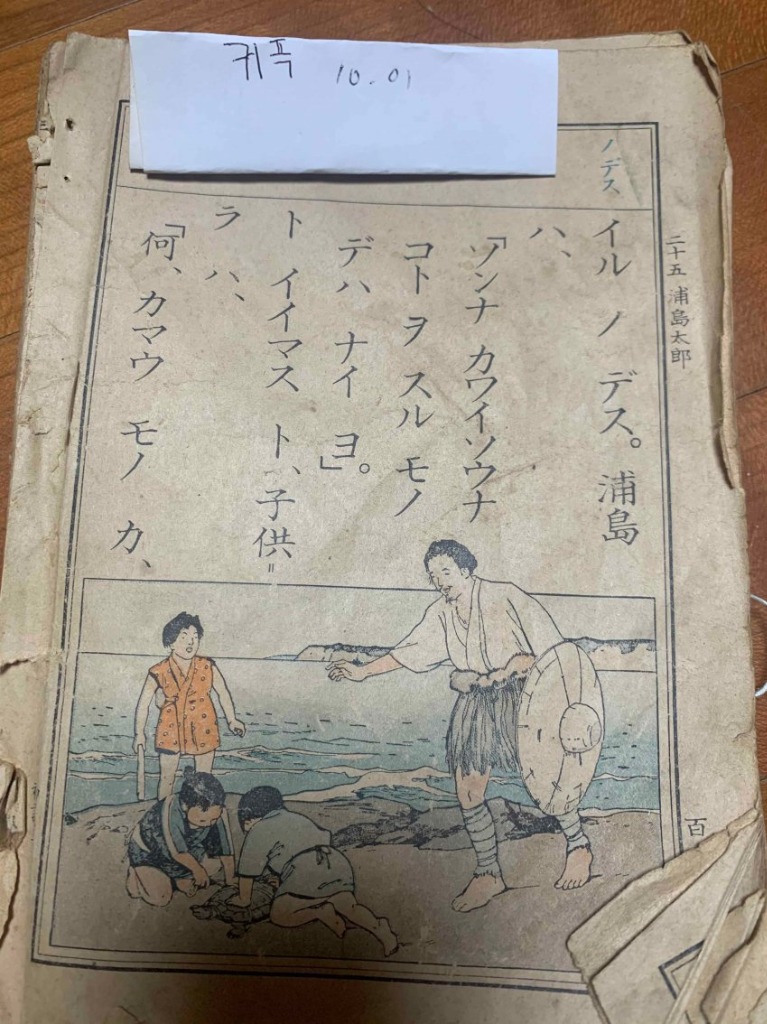 10.01
二十五 浦島太郎
百
ノデス
イル ノ デス。浦島
ハ、
「ソンナ カワイソウナ
コト ヲ スル モノ
デハ ナイ ヨ。」
ト イイマス ト、子供゠
ラ ハ、
「何、カマウ モノ カ、